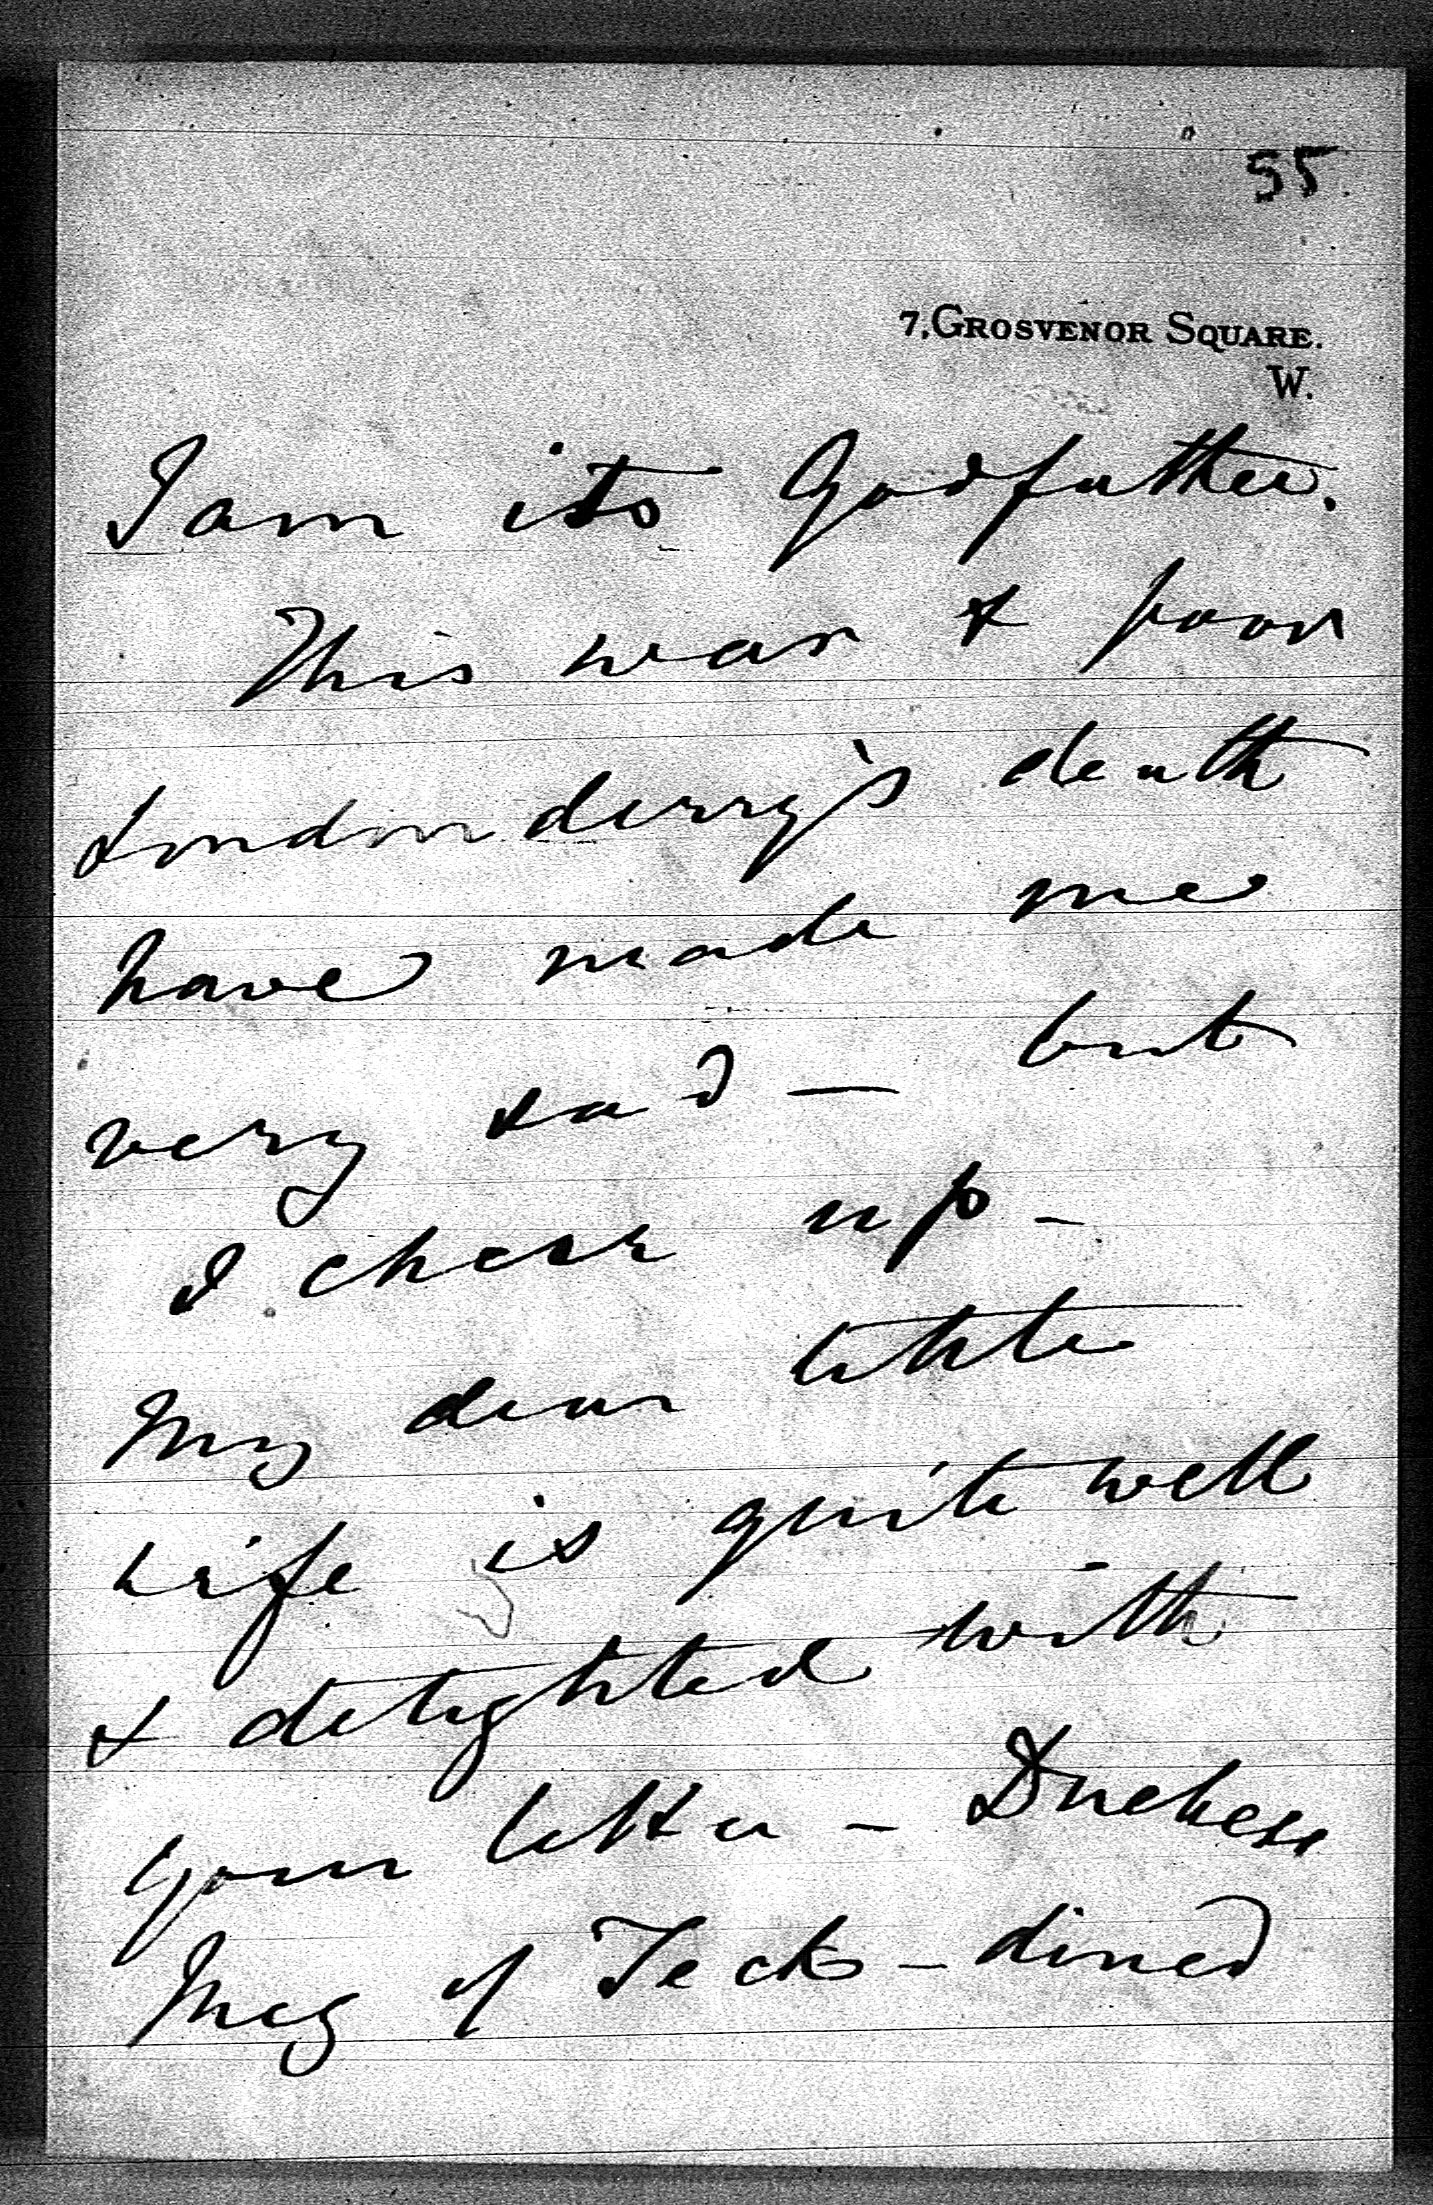 55
7, GROSVENOR SQUARE.
W.
I am its Godfather.
This war & poor
Londonderry's death
have made me
very sad — but
I cheer up -
My dear little
wife is quite well
& delighted with
your letter - Duchess
Meg of Teck - dined